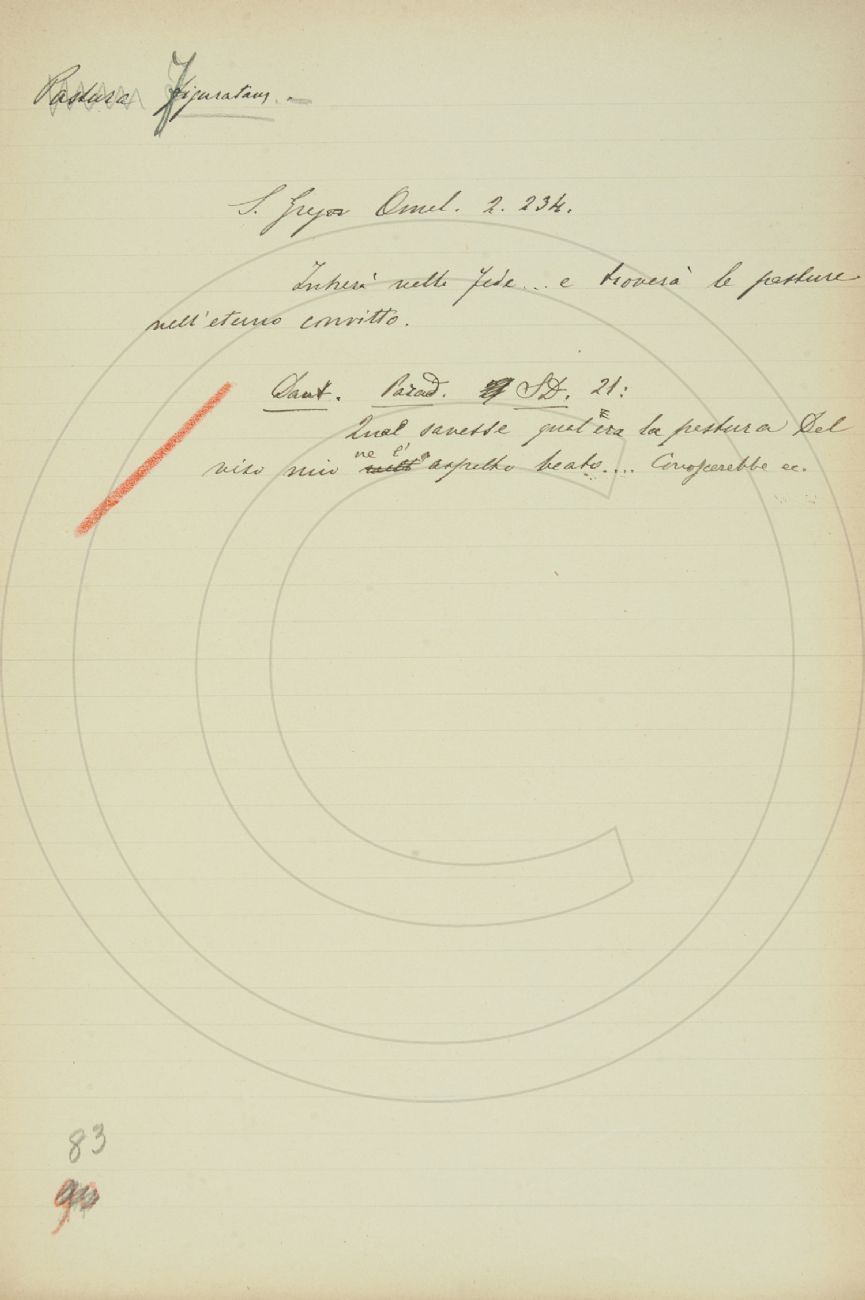 Pastura Figuratam. -
S. Greg Omel. 2. 234.
Interà nella fede... e troverà le pasture
nell'eterno convitto.
Dant. Parad. SD. 21:
Qual savesse qual'era la pastura Del
viso mio ne l'aspetto beato.... Conoscerebbe ec.
83